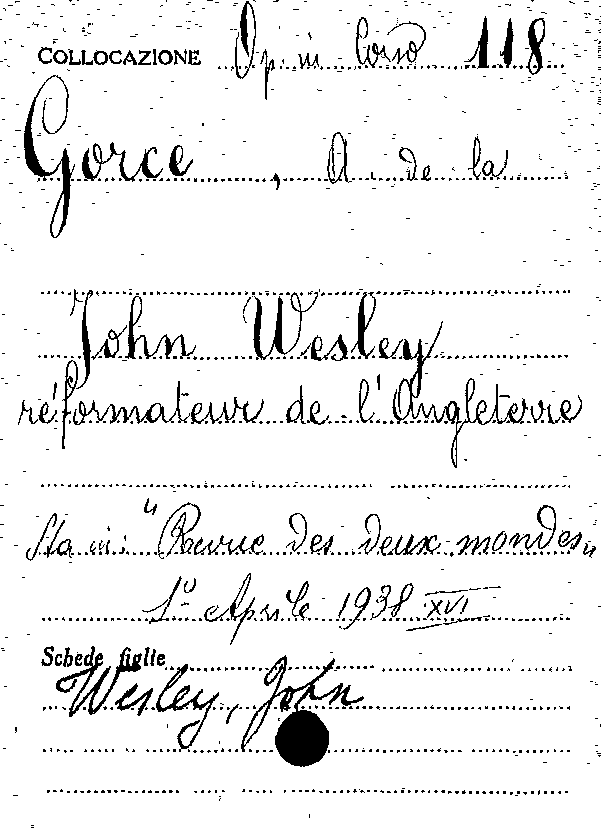 COLLOCAZIONE Op. in Corso 118
Gorce, A. de la
John Wesley
réformateur de l'Angleterre
Sta in: "Revue des deux mondes"
1º Aprile 1938 XVI
Schede figlie
Wesley, John